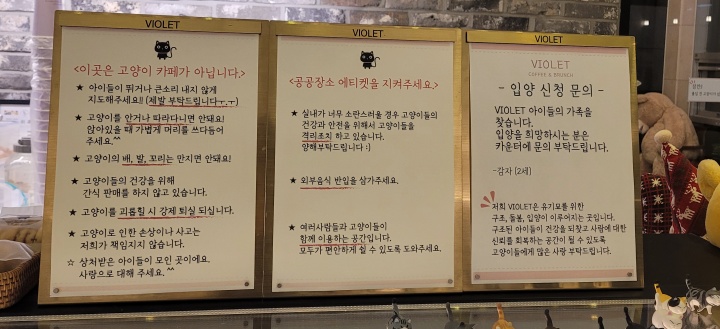 VIOLET
<이곳은 고양이 카페가 아닙니다.>
★ 아이들이 뛰거나 큰소리 내지 않게
지도해주세요!! (제발 부탁드립니다ㅜ,ㅜ)
★ 고양이를 안거나 따라다니면 안돼요!
앉아있을 때 가볍게 머리를 쓰다듬어
주세요.^^
★ 고양이의 배, 발, 꼬리는 만지면 안돼요!
★ 고양이들의 건강을 위해
간식 판매를 하지 않고 있습니다.
★ 고양이를 괴롭힐 시 강제 퇴실 되십니다.
★ 고양이로 인한 손상이나 사고는
저희가 책임지지 않습니다.
☆ 상처받은 아이들이 모인 곳이에요.
사랑으로 대해 주세요.^^
VIOLET
<공공장소 에티켓을 지켜주세요.>
★ 실내가 너무 소란스러울 경우 고양이들의
건강과 안전을 위해서 고양이들을
격리조치 하고 있습니다.
양해부탁드립니다 :)
★ 외부음식 반입을 삼가주세요.
★ 여러사람들과 고양이들이
함께 이용하는 공간입니다.
모두가 편안하게 쉴 수 있도록 도와주세요.
VIOLET
VIOLET
COFFEE & BRUNCH
- 입양 신청 문의 -
VIOLET 아이들의 가족을
찾습니다.
입양을 희망하시는 분은
카운터에 문의 부탁드립니다.
-감자 (2세)
저희 VIOLET은 유기묘를 위한
구조, 돌봄, 입양이 이루어지는 곳입니다.
구조된 아이들이 건강을 되찾고 사람에 대한
신뢰를 회복하는 공간이 될 수 있도록
고양이들에게 많은 사랑 부탁드립니다.